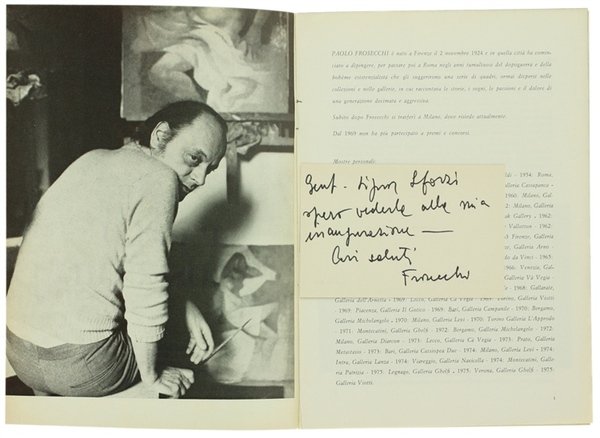 PAOLO FROSECCHI è nato a Firenze il 2 novembre 1924 e in quella città ha comin-
ciato a dipingere, per passare poi a Roma negli anni tumultuosi del dopoguerra e della
bohème esistenzialista che gli suggeriscono una serie di quadri, ormai dispersi nelle
collezioni e nelle gallerie, in cui raccontava le storie, i sogni, le passioni e il dolore di
una generazione decimata e aggressiva.
Subito dopo Frosecchi si trasferì a Milano, dove risiede attualmente.
Dal 1969 non ha più partecipato a premi e concorsi.
Mostre personali:
Gent. Signor Sforzi
spero vederla alla mia
inaugurazione —
Cari saluti
Frosecchi
ldi - 1954: Roma,
Galleria Cassapanca -
1960: Milano, Galleria
2: Milano, Galleria
Gallery - 1962:
Vallotton - 1962:
3 Firenze, Galleria
Galleria Arno -
do da Vinci - 1965:
1966: Venezia, Gal-
Galleria Cà Vegia -
1968: Gallarate,
Galleria dell'Arnetta - 1969: Lecco, Galleria Cà Vegia - 1969: Torino, Galleria Viotti
- 1969: Piacenza, Galleria Il Gotico - 1969: Bari, Galleria Campanile - 1970: Bergamo,
Galleria Michelangelo - 1970: Milano, Galleria Levi - 1970: Torino Galleria L'Approdo
- 1971: Montecatini, Galleria Ghelfi - 1972: Bergamo, Galleria Michelangelo - 1972:
Milano, Galleria Diarcon - 1973: Lecco, Galleria Cà Vegia - 1973: Prato, Galleria
Metastasio - 1973: Bari, Galleria Cassiopea Due - 1974: Milano, Galleria Levi - 1974:
Intra, Galleria Lanza - 1974: Viareggio, Galleria Navicella - 1974: Montecatini, Galle-
ria Patrizia - 1975: Legnago, Galleria Ghelfi - 1975: Verona, Galleria Ghelfi - 1975:
Galleria Viotti.